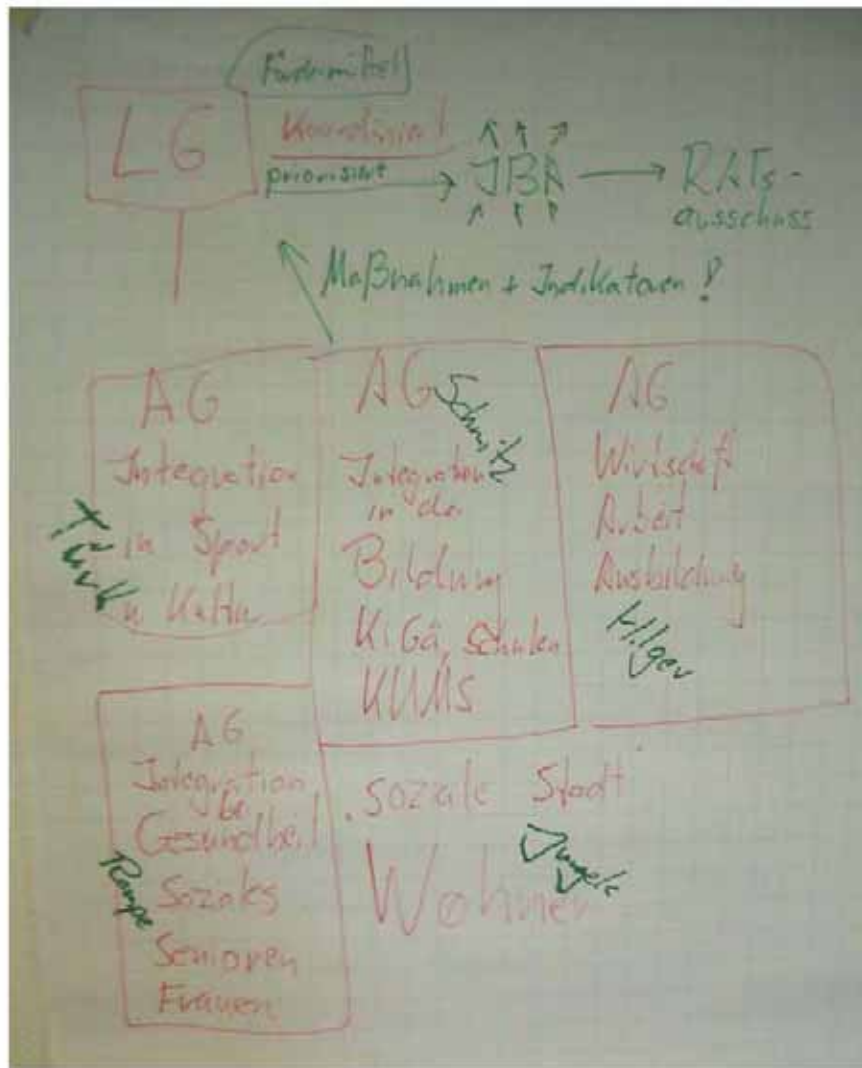 Fördermittel
LG
koordiniert
priorisiert
JBA
RATs-
ausschuss
Maßnahmen + Indikatoren!
AG
Integration
in Sport
u Kultur
AG
Schmitz
Integration
in der
Bildung
KiGä, Schulen
KUMS
AG
Wirtschaft
Arbeit
Ausbildung
Hilger
AG
Integration
Gesundheit
Soziales
Senioren
Frauen
Rampe
soziale Stadt
Wohnen